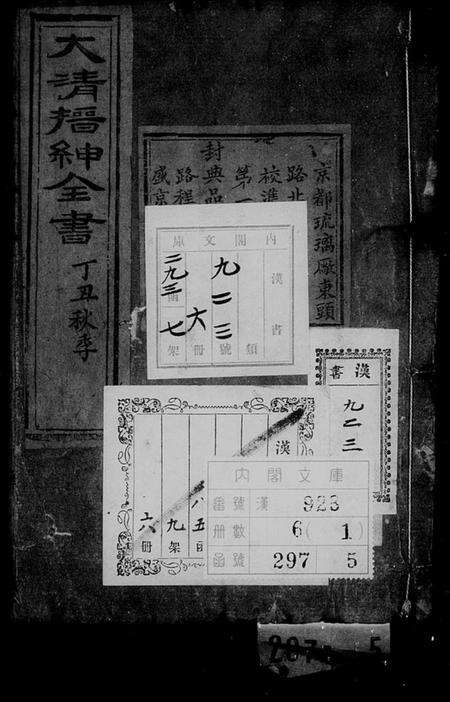 大清搢紳全書
丁丑秋季
京都琉璃厰東頭
路北
校準
第一
封典品
路程
盛京
内閣文庫
漢書
九二三
類
號
六
冊
二九三
函
七
架
漢書
九二三
漢
八五
函
九
架
六
冊
内閣文庫
番號 漢 923
冊數 6(1)
函號 297 5
297 5